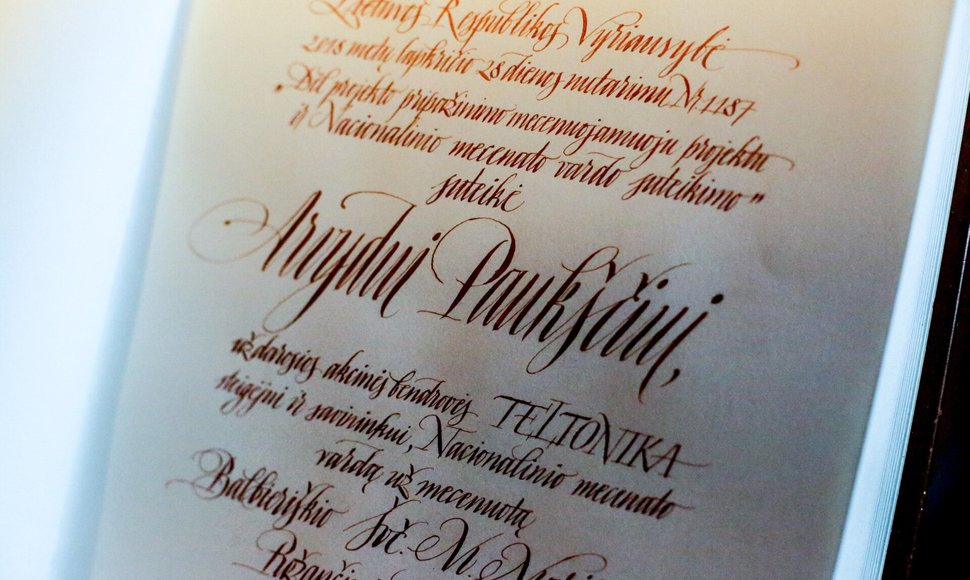 Lietuvos Respublikos Vyriausybė
2018 metų lapkričio 28 dienos nutarimu Nr. 1187
„Dėl projekto pripažinimo mecenuojamuoju projektu
ir Nacionalinio mecenato vardo suteikimo”
suteikė
Arvydui Paukščiui,
uždarosios akcinės bendrovės TELTONIKA
steigėjui ir savininkui, Nacionalinio mecenato
vardą už mecenuotą
Balbieriškio Švč. M.